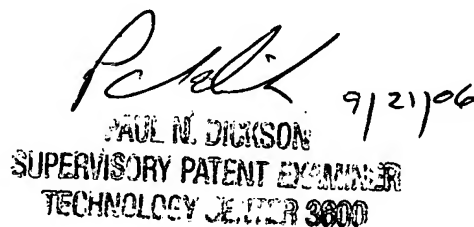 9/21/06
PAUL N. DICKSON
SUPERVISORY PATENT EXAMINER
TECHNOLOGY CENTER 3600